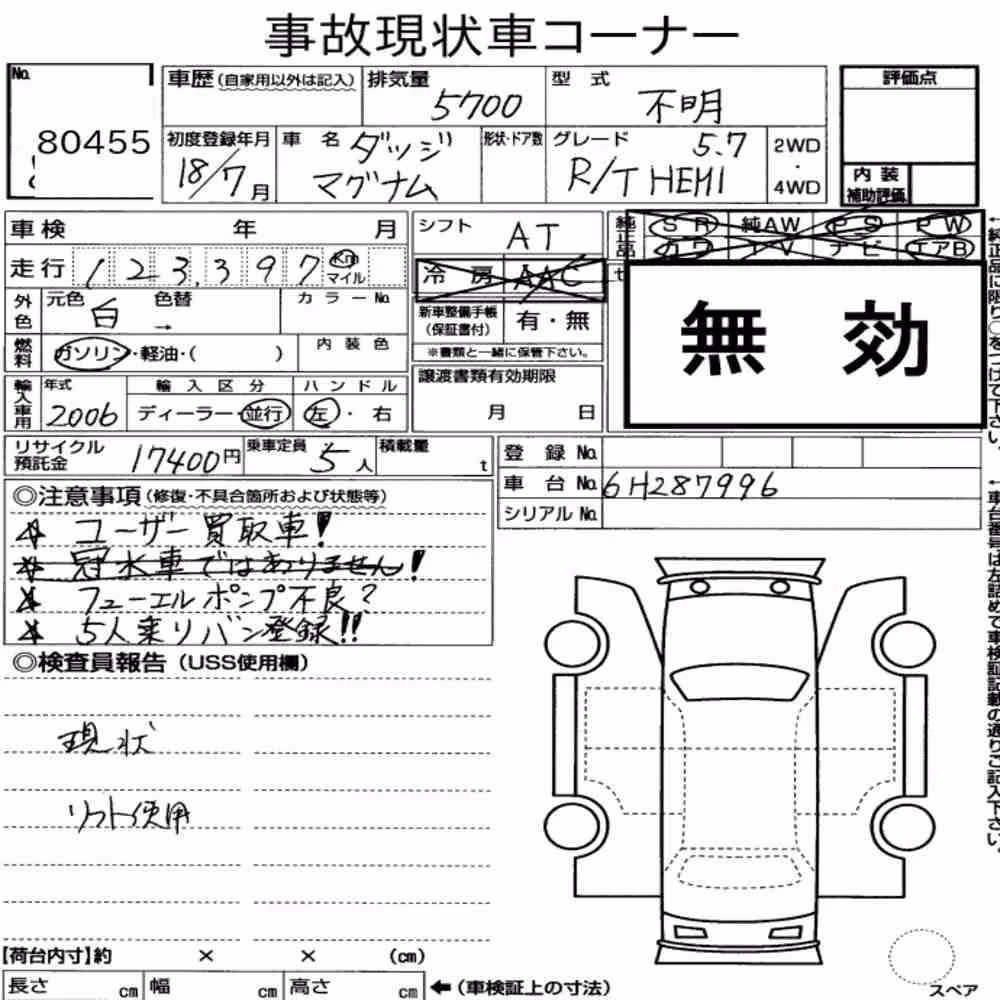 事故現状車コーナー
No.
80455
車歴(自家用以外は記入)
排気量
5700
型式
不明
評価点
初度登録年月
18/7月
車名
ダッジ
マグナム
形状・ドア数
グレード
5.7
R/T HEMI
2WD
・
4WD
内装
補助評価
車検 年 月
シフト
AT
純正品
SR 純AW PS PW
TV ナビ エアB
走行 123,397 Km
マイル
冷房 AAC
無効
外色
元色 白
色替 →
カラーNo.
新車整備手帳
(保証書付)
有・無
※書類と一緒に保管下さい。
燃料
ガソリン・軽油・( )
内装色
輸入車用
年式
2006
輸入区分
ディーラー・並行
ハンドル
左・右
譲渡書類有効期限
月 日
リサイクル
預託金
17400円
乗車定員
5人
積載量
t
登録No.
車台No. 6H287996
シリアルNo.
◎注意事項(修復・不具合箇所および状態等)
☆ ユーザー買取車!
☆ 冠水車ではありません!
☆ フューエルポンプ不良?
☆ 5人乗りバン登録!!
◎検査員報告(USS使用欄)
現状
リフト使用
【荷台内寸】約 × × (cm)
長さ cm 幅 cm 高さ cm ←(車検証上の寸法)
スペア
←純正品に限り○をつけて下さい。
←車台番号は左詰めで車検証記載の通りご記入下さい。